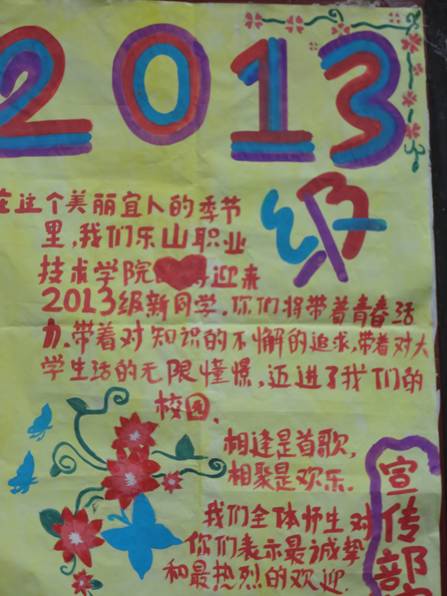 2013
级
在这个美丽宜人的季节
里,我们乐山职业
技术学院 迎来
2013级新同学.你们将带着青春活
力.带着对知识的不懈的追求,带着对大
学生活的无限憧憬,迈进了我们的
校园、
相逢是首歌,
相聚是欢乐.
我们全体师生对
你们表示最诚挚
和最热烈的欢迎.
宣传部